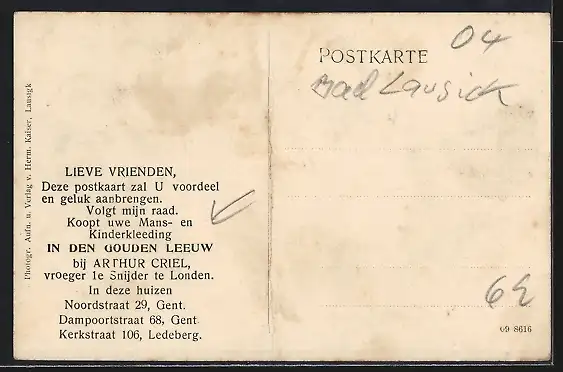 Photogr. Aufn. u. Verlag v. Herm. Kaiser, Lausigk
LIEVE VRIENDEN,
Deze postkaart zal U voordeel
en geluk aanbrengen.
Volgt mijn raad.
Koopt uwe Mans- en
Kinderkleeding
IN DEN GOUDEN LEEUW
bij ARTHUR CRIEL,
vroeger 1e Snijder te Londen.
In deze huizen
Noordstraat 29, Gent.
Dampoortstraat 68, Gent
Kerkstraat 106, Ledeberg.
POSTKARTE
04
Bad Lausick
09 8616